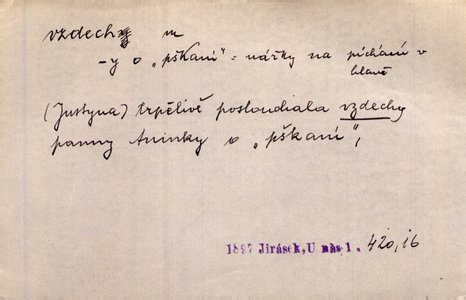 vzdech m
-y o „pškaní" = nářky na píchání v
hlavě
(Justyna) trpělivě poslouchala vzdechy
panny Aninky o „pškaní",
1897 Jirásek, U nás 1. 420, 16